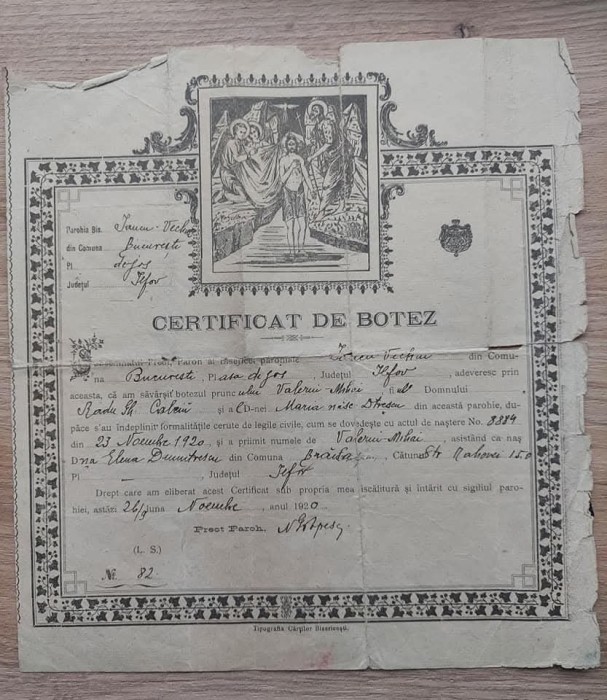 Parohia Bis. Iancu-Vechiu
din Comuna București
Pl. de jos
Județul Ilfov
CERTIFICAT DE BOTEZ
Preot, Paroh al bisericei parohiale Iancu Vechiu din Comu-
na București, Plasa de jos, Județul Ilfov, adeveresc prin
aceasta, că am săvârșit botezul pruncului Valeriu-Mihai fiul Domnului
Radu Gh. și a D-nei Maria născ. din această parohie, du-
păce s'au îndeplinit formalitățile cerute de legile civile, cum se dovedește cu actul de naștere No. 8884
din 23 Noembe 1920 și a primit numele de Valeriu-Mihai, asistând ca naș
D-na Elena Dumitrescu din Comuna Cătuna Str Rahovei 150
Pl — Județul Ilfov
Drept care am eliberat acest Certificat sub propria mea iscălitură și întărit cu sigiliul paro-
hiei, astăzi 26 luna Noembe, anul 1920.
Preot Paroh,
(L. S.)
No. 82
Tipografia Cărților Bisericești.